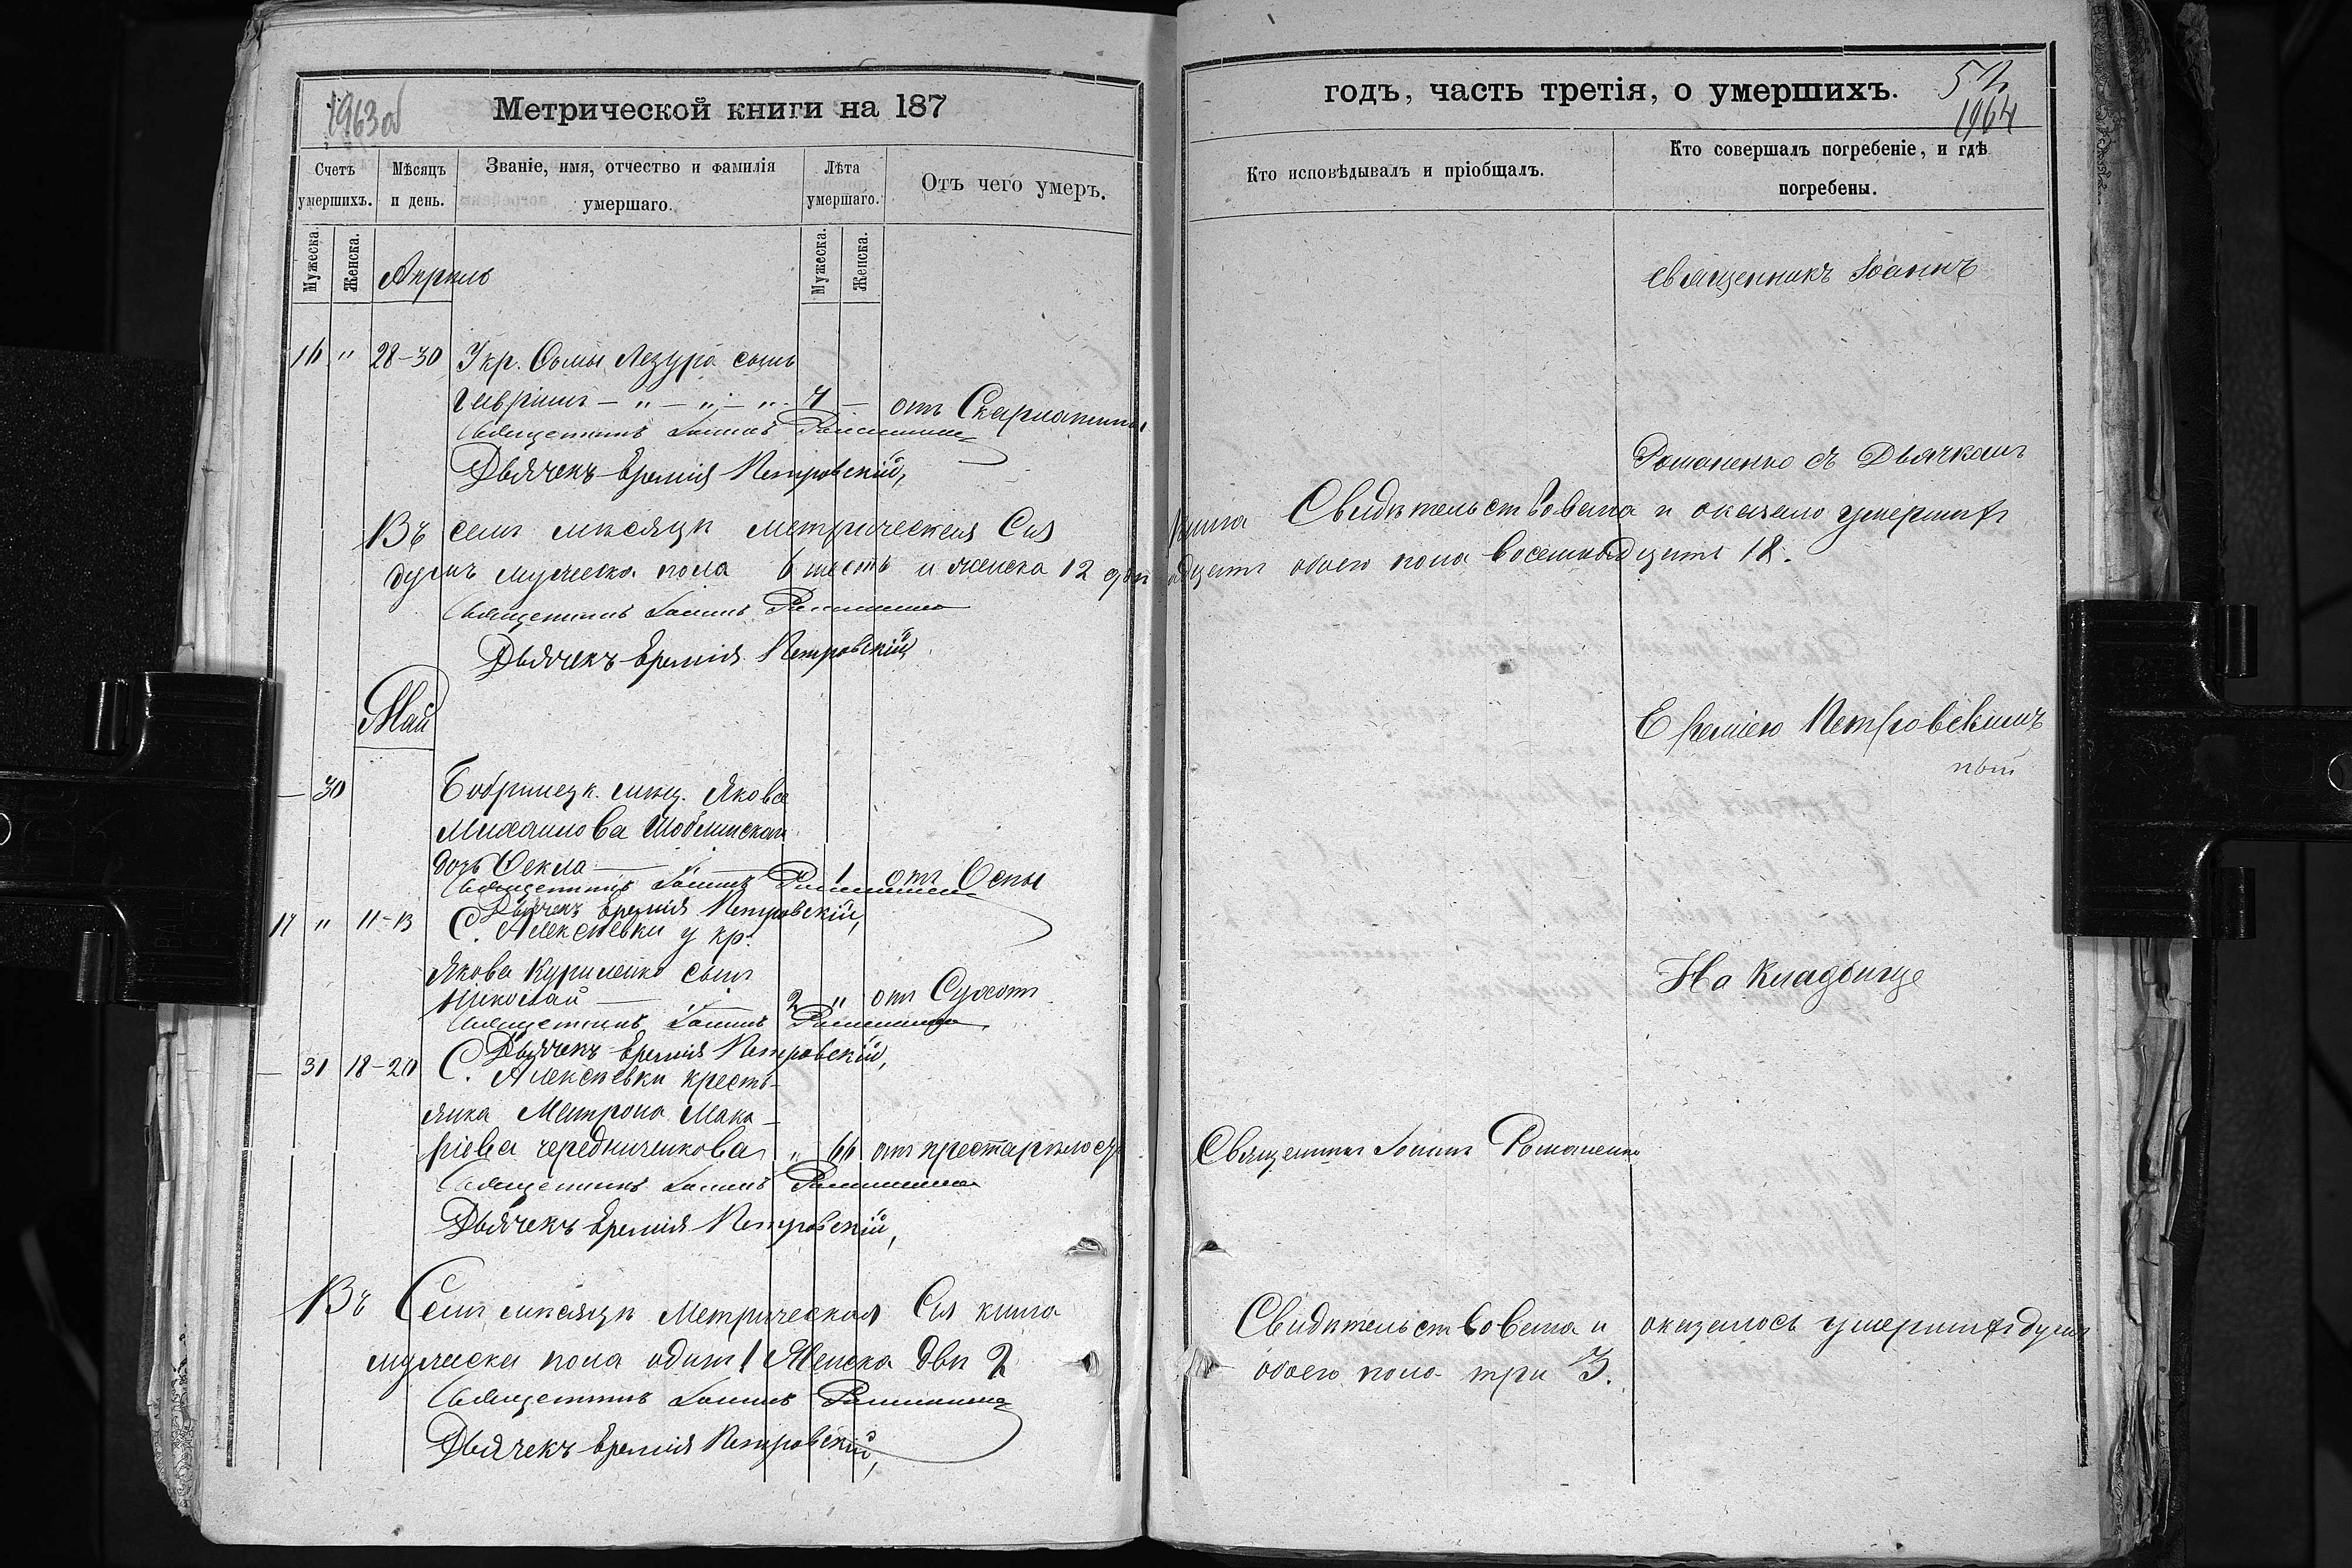 1963 об
Метрической книги на 187
Счетъ умершихъ.
Мѣсяцъ и день.
Званіе, имя, отчество и фамилія умершаго.
Лѣта умершаго.
Отъ чего умеръ.
Мужеска.
Женска.
Мужеска.
Женска.
Апрель
16 " 28-30 У кр. Ѳомы Лазура сынъ
Гавріилъ — " — " — " 4 — отъ Скарлатины
Священникъ Іоаннъ Романенко
Дьячекъ Еремія Петровскій,
Въ семъ мѣсяцѣ метрическая Сія
душъ мужеска пола 6 шесть и женска 12 двѣ
Священникъ Іоаннъ Романенко
Дьячекъ Еремія Петровскій
Май
— 30 Бобринецк. мѣщ. Якова
Михаилова
дочь Ѳекла — 1 отъ Оспы
Священникъ Іоаннъ Романенко
Дьячекъ Еремія Петровскій,
17 " 11-13 С. Алексѣевки у кр.
Якова Куриленко сынъ
Николай — 2 " отъ Сухот
Священникъ Іоаннъ Романенко
Дьячекъ Еремія Петровскій,
— 31 18-20 С. Алексѣевки кресть-
янка Матрона Мака-
ріева Чередниченкова " 66 отъ престарѣлос
Священникъ Іоаннъ Романенко
Дьячекъ Еремія Петровскій,
Въ Семъ мѣсяцѣ Метрическая Сія книга
мужеска пола одинъ 1 Женска двѣ 2
Священникъ Іоаннъ Романенко
Дьячекъ Еремія Петровскій,
годъ, часть третія, о умершихъ.
52
1964
Кто исповѣдывалъ и пріобщалъ.
Кто совершалъ погребеніе, и гдѣ погребены.
Священникъ Іоаннъ
Романенко съ Дьячкомъ
Книга Свидѣтельствована и оказало умершихъ
надцать обоего пола восемнадцать 18.
Ереміею Петровскимъ
На Кладбище
Священникъ Іоаннъ Романенко
Свидѣтельствована и оказалось умершихъ душъ
обоего пола три 3.